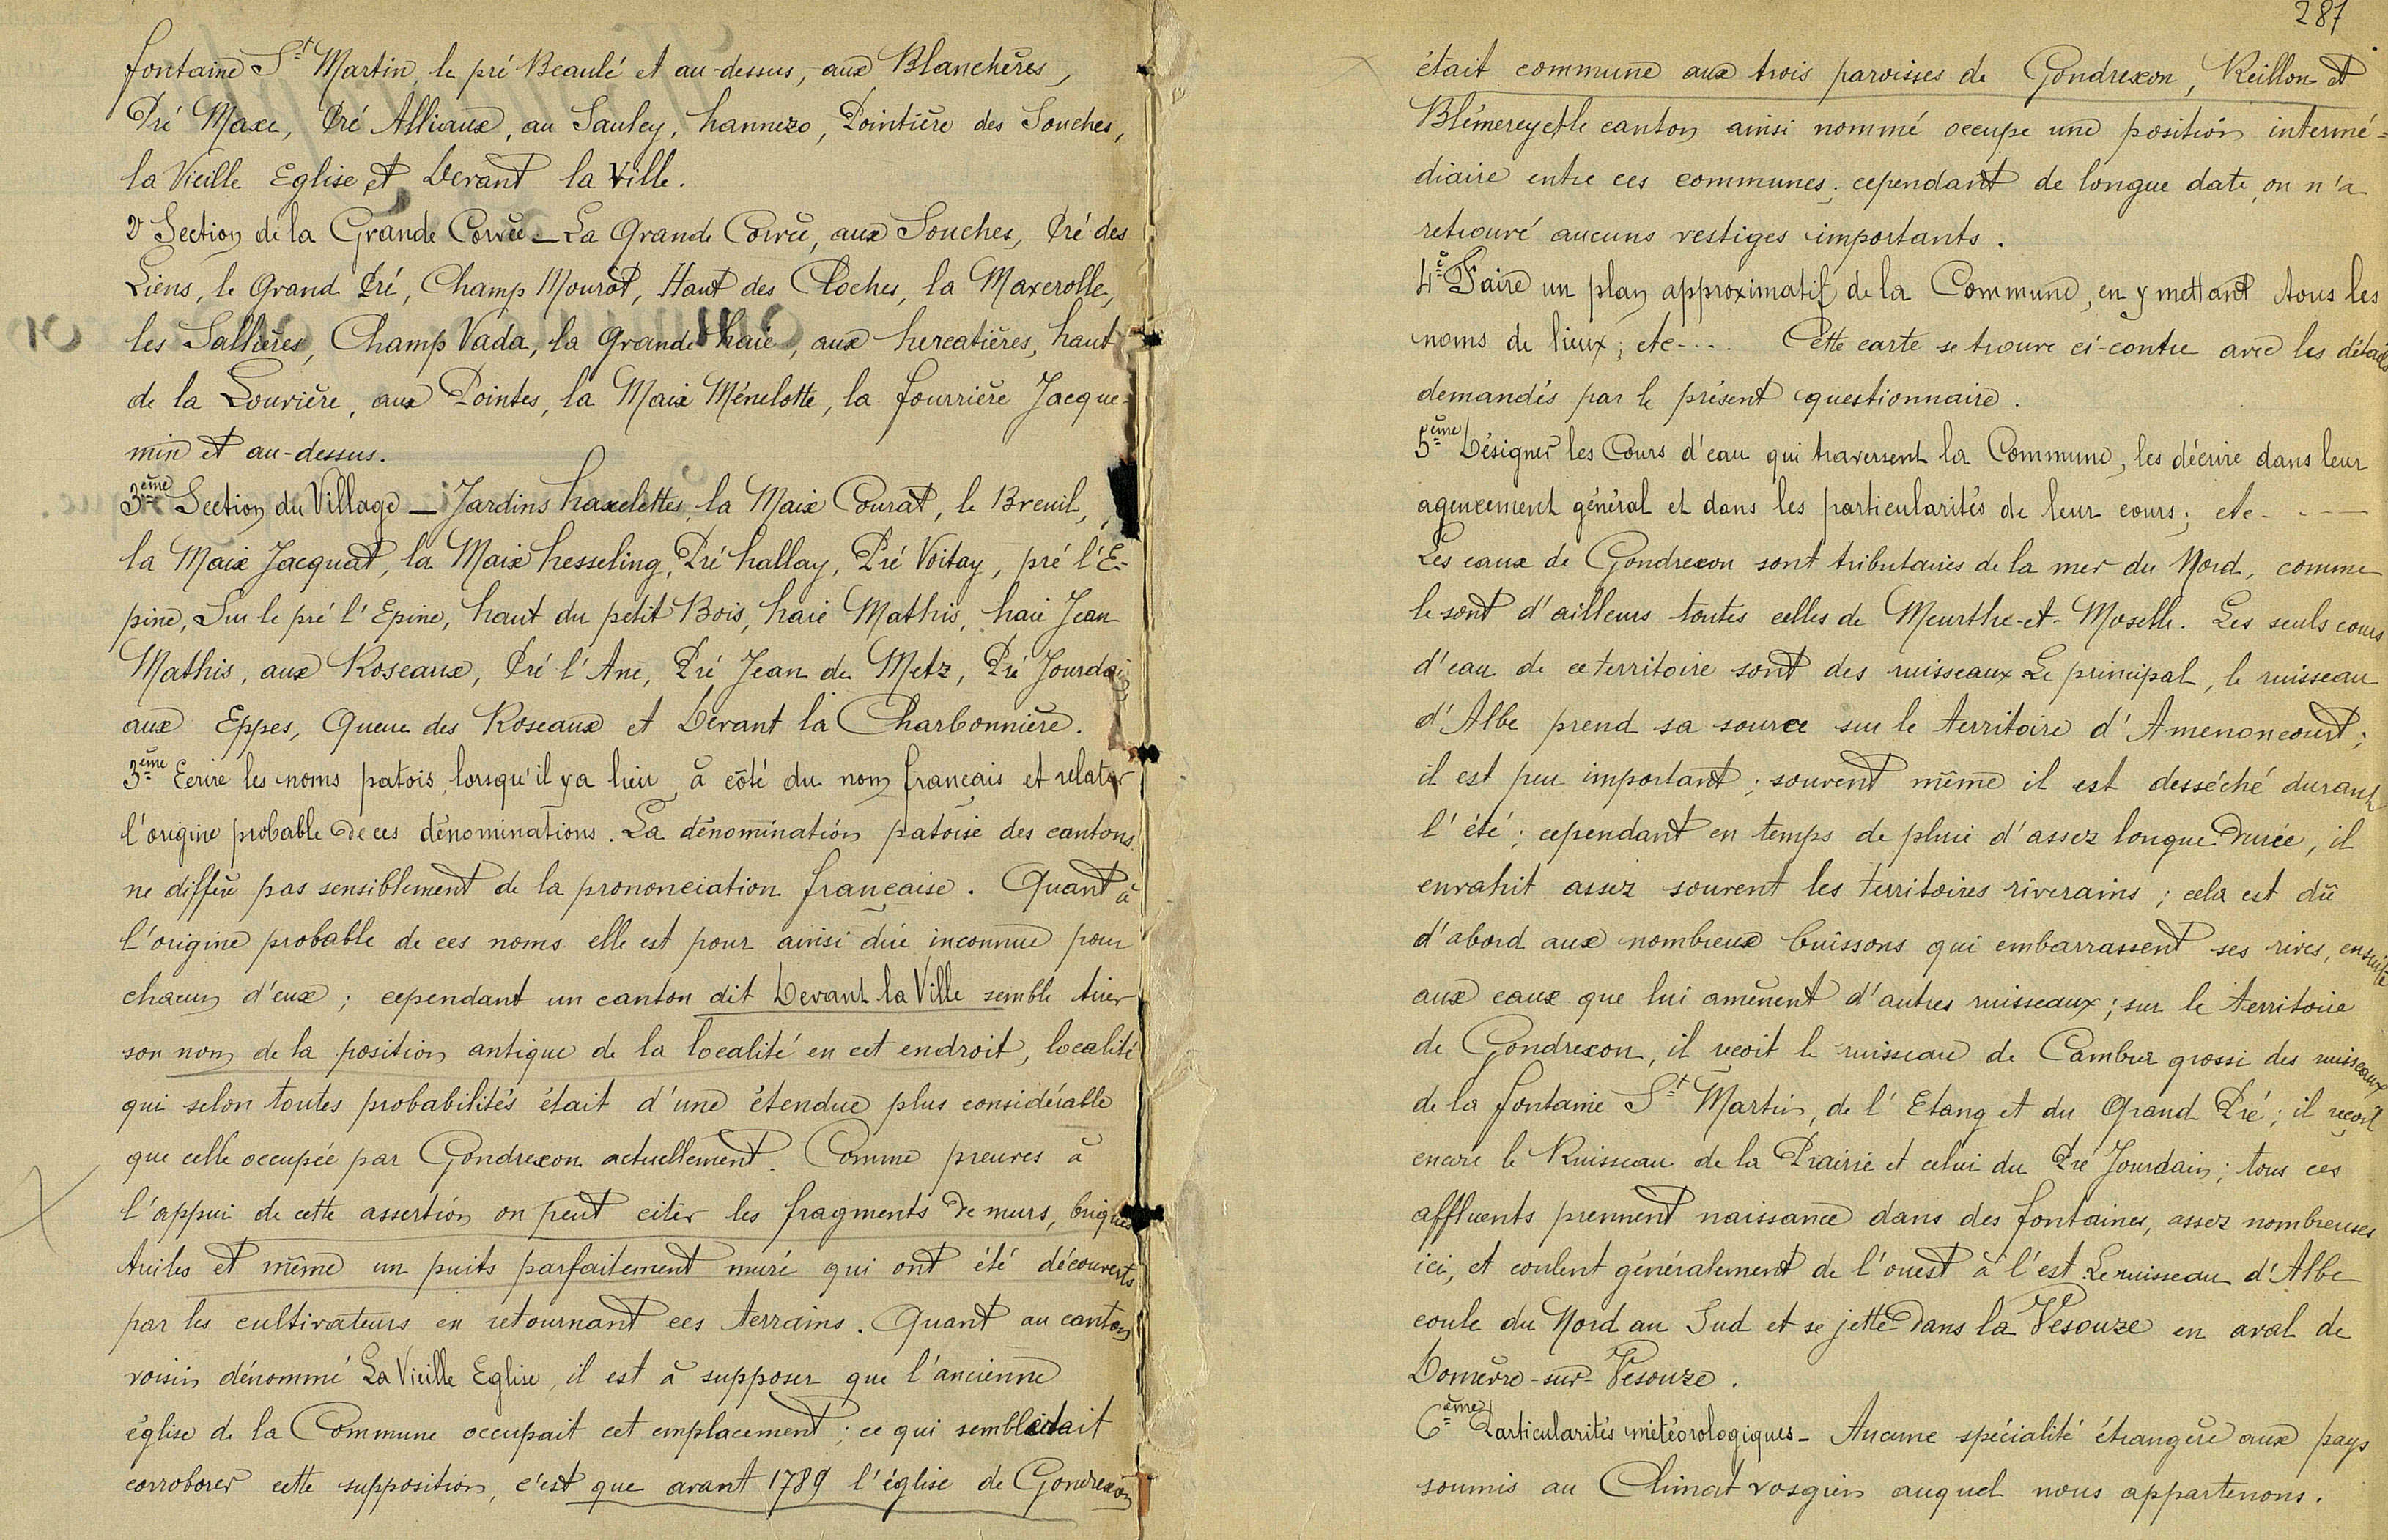 fontaine St Martin, le pré Beaulé et au-dessus, aux Blanchères,
Pré Maxe, Pré Alliaux, au Sauley, hannezo, Pointière des Souches,
la Vieille Eglise et Devant la Ville.
2° Section de la Grande Corvée _ La Grande Corvée, aux Souches, Pré des
Liens, le Grand Pré, Champ Mourot, Haut des Cloches, la Maxerolle,
les Sallières, Champ Vada, la Grande haie, aux hercatières, haut
de la Louvière, aux Pointes, la Maix Ménelotte, la fourrière Jacque-
min et au-dessus.
3ème Section du Village _ Jardins haxelettes, la Maix Courat, le Breuil,
la Maix Jacquat, la Maix hesseling, Pré hallay, Pré Voitay, pré l'E-
pine, Sur le pré l'Epine, haut du petit Bois, haie Mathis, haie Jean
Mathis, aux Roseaux, Pré l'Ane, Pré Jean de Metz, Pré Jourdain
aux Eppes, Queue des Roseaux et Devant la Charbonnière.
3ème Ecrire les noms patois, lorsqu'il y a lieu, à côté du nom français et relater
l'origine probable de ces dénominations. La dénomination patoise des cantons
ne diffère pas sensiblement de la prononciation française. Quant à
l'origine probable de ces noms elle est pour ainsi dire inconnue pour
chacun d'eux ; cependant un canton dit Devant la Ville semble tirer
son nom de la position antique de la localité en cet endroit, localité
qui selon toutes probabilités était d'une étendue plus considérable
que celle occupée par Gondrexon actuellement. Comme preuves à
l'appui de cette assertion on peut citer les fragments de murs, briques
tuiles et même un puits parfaitement muré qui ont été découverts
par les cultivateurs en retournant ces terrains. Quant au canton
voisin dénommé La Vieille Eglise, il est à supposer que l'ancienne
église de la Commune occupait cet emplacement ; ce qui semblerait
corroborer cette supposition, c'est que avant 1789 l'église de Gondrexon
287
était commune aux trois paroisses de Gondrexon, Reillon et
Blémerey et le canton ainsi nommé occupe une position intermé-
diaire entre ces communes ; cependant de longue date, on n'a
retrouvé aucuns vestiges importants.
4e Faire un plan approximatif de la Commune, en y mettant tous les
noms de lieux ; etc.... Cette carte se trouve ci-contre avec les détails
demandés par le présent questionnaire.
5ème Désigner les Cours d'eau qui traversent la Commune, les décrire dans leur
agencement général et dans les particularités de leur cours ; etc - - -
Les eaux de Gondrexon sont tributaires de la mer du Nord, comme
le sont d'ailleurs toutes celles de Meurthe-et-Moselle. Les seuls cours
d'eau de ce territoire sont des ruisseaux. Le principal, le ruisseau
d'Albe prend sa source sur le territoire d'Amenoncourt ;
il est peu important ; souvent même il est desséché durant
l'été ; cependant en temps de pluie d'assez longue durée, il
envahit assez souvent les territoires riverains ; cela est dû
d'abord aux nombreux buissons qui embarrassent ses rives, ensuite
aux eaux que lui amènent d'autres ruisseaux ; sur le territoire
de Gondrexon, il reçoit le ruisseau de Cambur grossi des ruisseaux
de la fontaine St Martin, de l'Etang et du Grand Pré ; il reçoit
encore le Ruisseau de la Prairie et celui du Pré Jourdain ; tous ces
affluents prennent naissance dans des fontaines, assez nombreuses
ici, et coulent généralement de l'ouest à l'est. Le ruisseau d'Albe
coule du Nord au Sud et se jette dans la Vesouze en aval de
Domèvre-sur-Vesouze.
6ème Particularités météorologiques _ Aucune spécialité étrangère aux pays
soumis au Climat vosgien auquel nous appartenons.